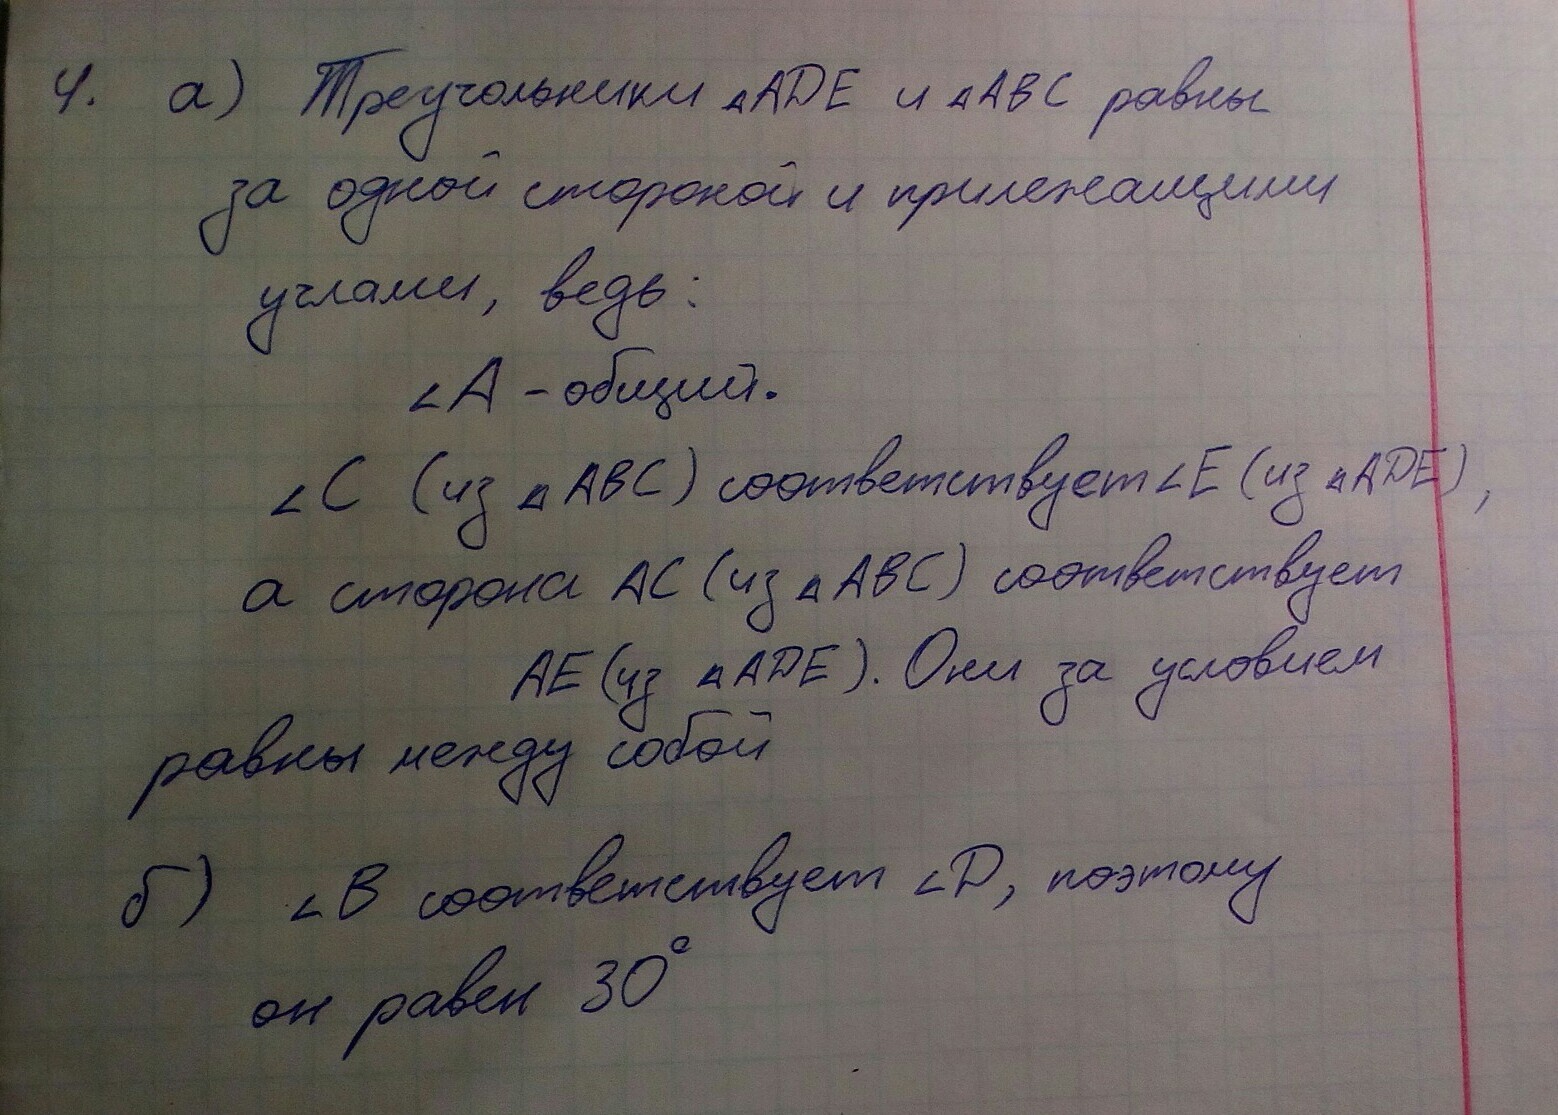 4. а) Треугольники △ADE и △ABC равны
за одной стороной и прилежащими
углами, ведь:
∠A - общий.
∠C (из △ABC) соответствует ∠E (из △ADE),
а сторона AC (из △ABC) соответствует
AE (из △ADE). Они за условием
равны между собой
б) ∠B соответствует ∠D, поэтому
он равен 30°